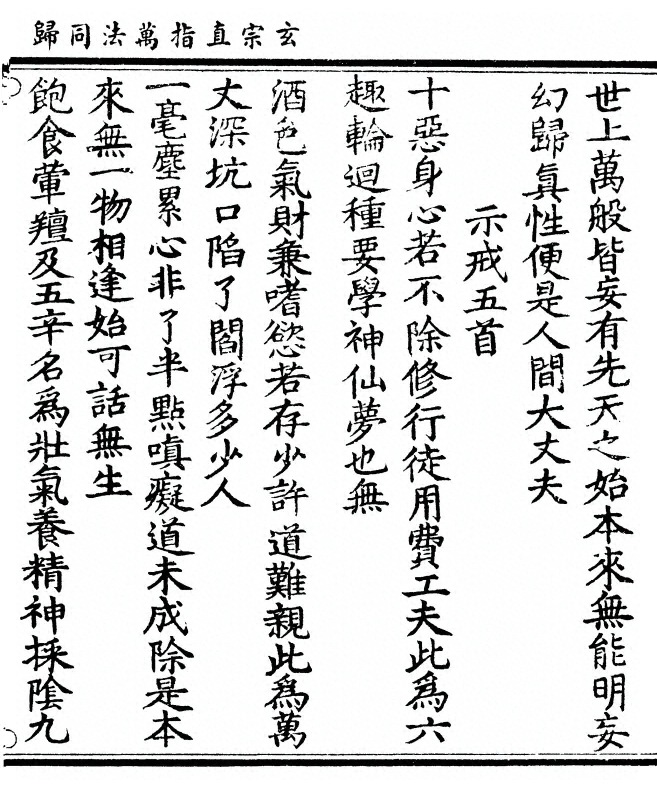 玄宗直指萬法同歸
世上萬般皆妄有先天之始本來無能明妄
幻歸真性便是人間大丈夫
示戒五首
十惡身心若不除修行徒用費工夫此為六
趣輪迴種要學神仙夢也無
酒色氣財兼嗜慾若存少許道難親此為萬
丈深坑口陷了閻浮多少人
一毫塵累心非了半點嗔癡道未成除是本
來無一物相逢始可話無生
飽食葷羶及五辛名為壯氣養精神採陰九